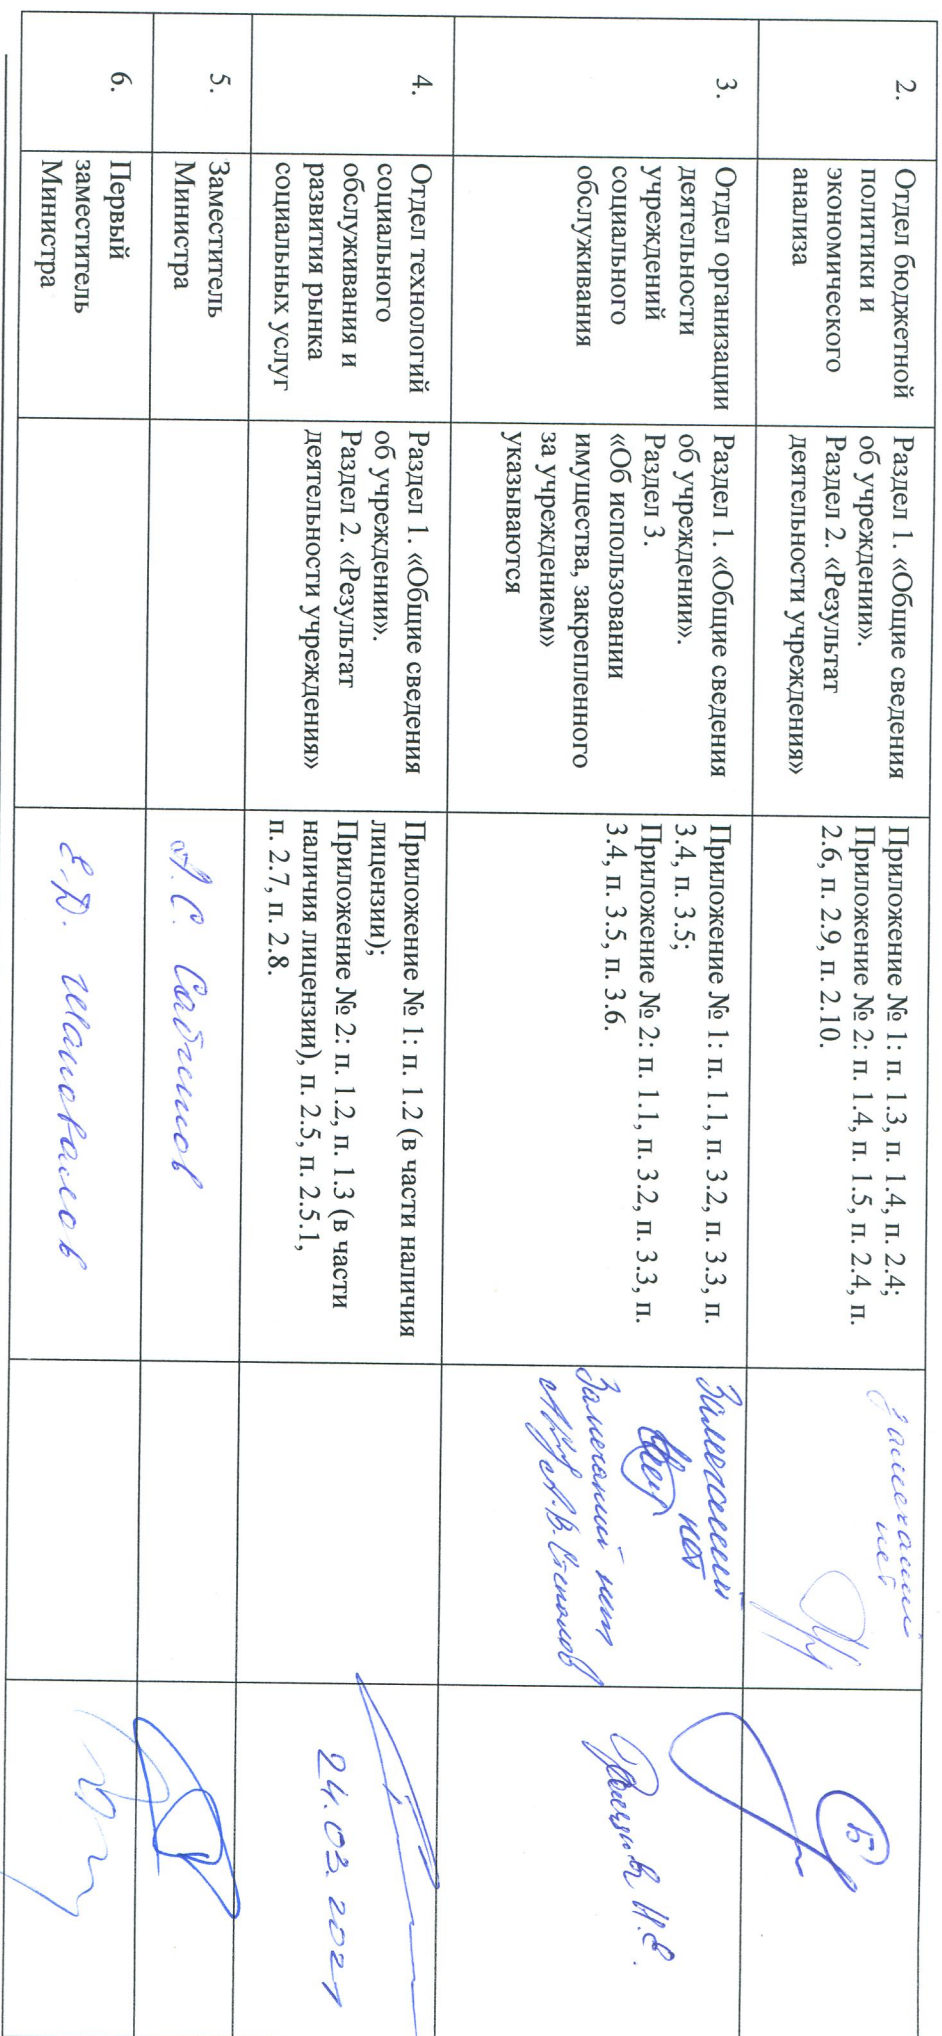 2.
Отдел бюджетной
политики и
экономического
анализа
Раздел 1. «Общие сведения
об учреждении».
Раздел 2. «Результат
деятельности учреждения»
Приложение № 1: п. 1.3, п. 1.4, п. 2.4;
Приложение № 2: п. 1.4, п. 1.5, п. 2.4, п.
2.6, п. 2.9, п. 2.10.
замечаний
нет
3.
Отдел организации
деятельности
учреждений
социального
обслуживания
Раздел 1. «Общие сведения
об учреждении».
Раздел 3.
«Об использовании
имущества, закрепленного
за учреждением»
указываются
Приложение № 1: п. 1.1, п. 3.2, п. 3.3, п.
3.4, п. 3.5;
Приложение № 2: п. 1.1, п. 3.2, п. 3.3, п.
3.4, п. 3.5, п. 3.6.
Замечаний
нет
Замечаний нет
А.В.
Н.Е.
4.
Отдел технологий
социального
обслуживания и
развития рынка
социальных услуг
Раздел 1. «Общие сведения
об учреждении».
Раздел 2. «Результат
деятельности учреждения»
Приложение № 1: п. 1.2 (в части наличия
лицензии);
Приложение № 2: п. 1.2, п. 1.3 (в части
наличия лицензии), п. 2.5, п. 2.5.1,
п. 2.7, п. 2.8.
24.03.2021
5.
Заместитель
Министра
А.С. Садчиков
6.
Первый
заместитель
Министра
Е.Д. Шаповалов